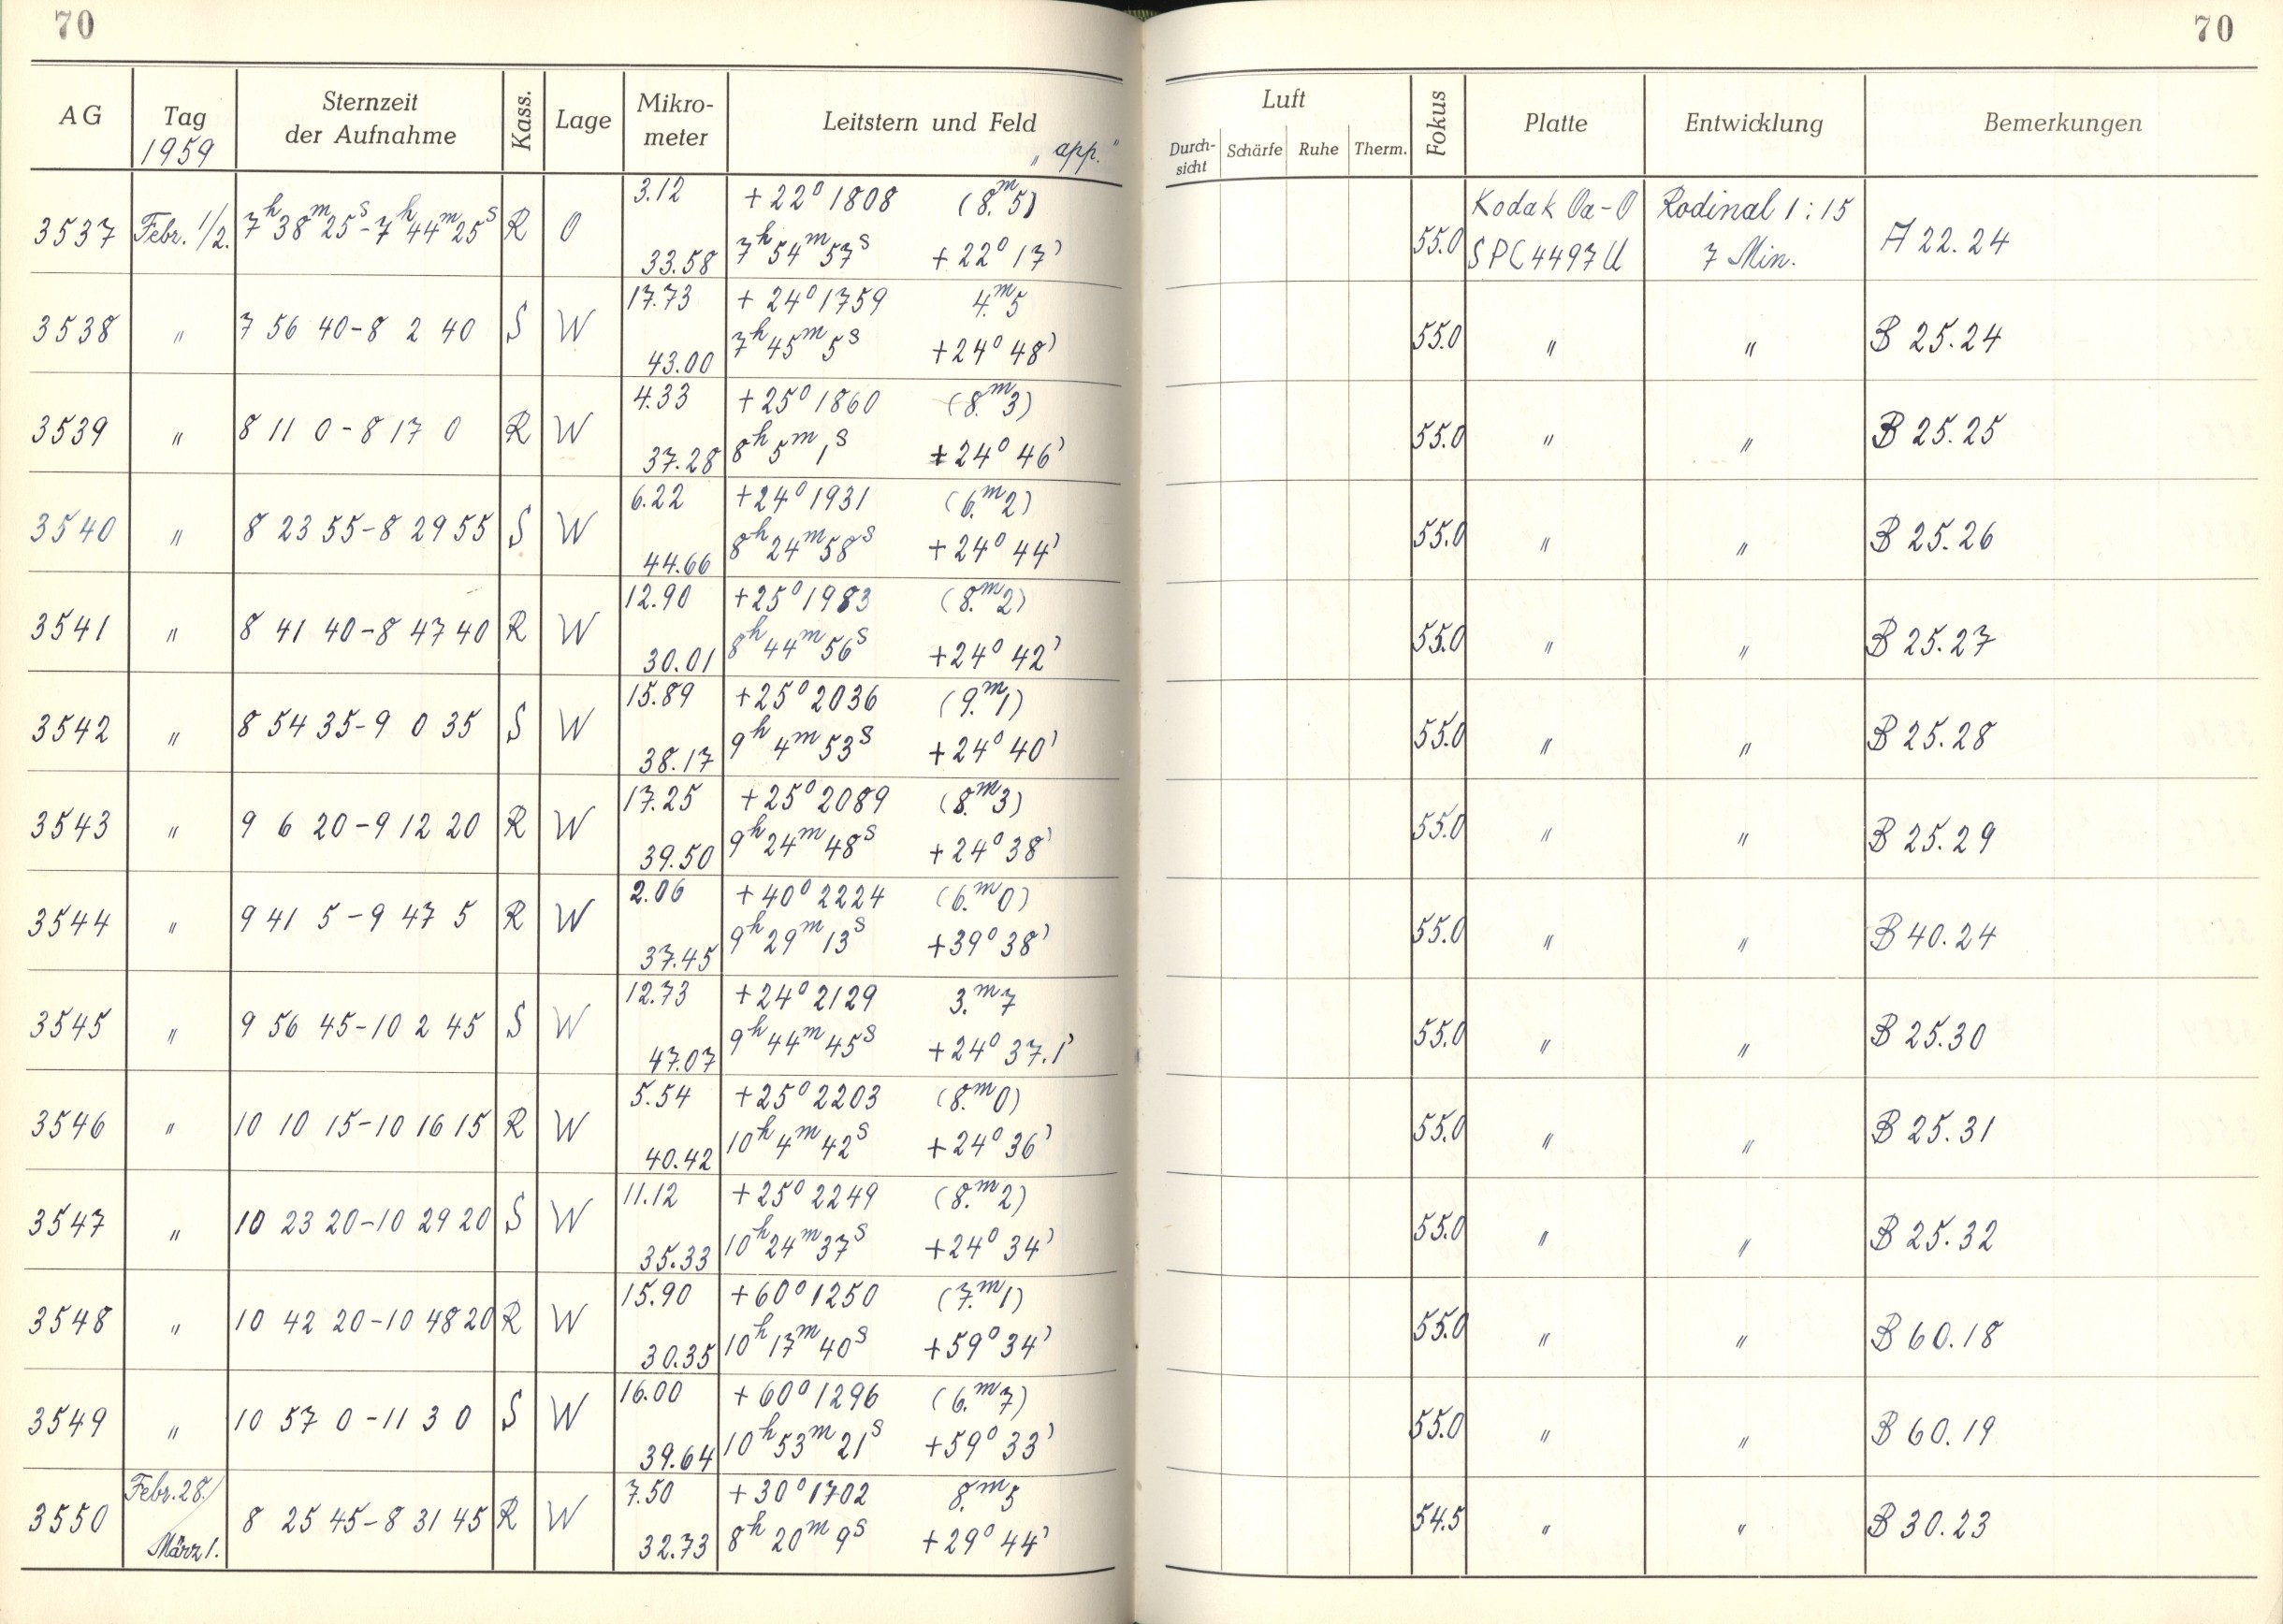 70
70
AG Tag 1959 Sternzeit der Aufnahme Kass. Lage Mikro-meter Leitstern und Feld "app."
Luft Durch-sicht Schärfe Ruhe Therm. Fokus Platte Entwicklung Bemerkungen
3.12 +22° 1808 (8.ᵐ5) Kodak Oa-O Rodinal 1:15
3537 Febr. 1/2. 7ʰ38ᵐ25ˢ-7ʰ44ᵐ25ˢ R O 33.58 7ʰ54ᵐ57ˢ +22° 17' 55.0 SPC4497U 7 Min. A 22.24
17.73 +24° 1759 4.ᵐ5
3538 " 7 56 40-8 2 40 S W 43.00 7ʰ45ᵐ5ˢ +24° 48' 55.0 " " B 25.24
4.33 +25° 1860 (8.ᵐ3)
3539 " 8 11 0-8 17 0 R W 37.28 8ʰ5ᵐ1ˢ +24° 46' 55.0 " " B 25.25
6.22 +24° 1931 (6.ᵐ2)
3540 " 8 23 55-8 29 55 S W 44.66 8ʰ24ᵐ58ˢ +24° 44' 55.0 " " B 25.26
12.90 +25° 1983 (8.ᵐ2)
3541 " 8 41 40-8 47 40 R W 30.01 8ʰ44ᵐ56ˢ +24° 42' 55.0 " " B 25.27
15.89 +25° 2036 (9.ᵐ1)
3542 " 8 54 35-9 0 35 S W 38.17 9ʰ4ᵐ53ˢ +24° 40' 55.0 " " B 25.28
17.25 +25° 2089 (8.ᵐ3)
3543 " 9 6 20-9 12 20 R W 39.50 9ʰ24ᵐ48ˢ +24° 38' 55.0 " " B 25.29
2.06 +40° 2224 (6.ᵐ0)
3544 " 9 41 5-9 47 5 R W 37.45 9ʰ29ᵐ13ˢ +39° 38' 55.0 " " B 40.24
12.73 +24° 2129 3.ᵐ7
3545 " 9 56 45-10 2 45 S W 47.07 9ʰ44ᵐ45ˢ +24° 37.1' 55.0 " " B 25.30
5.54 +25° 2203 (8.ᵐ0)
3546 " 10 10 15-10 16 15 R W 40.42 10ʰ4ᵐ42ˢ +24° 36' 55.0 " " B 25.31
11.12 +25° 2249 (8.ᵐ2)
3547 " 10 23 20-10 29 20 S W 35.33 10ʰ24ᵐ37ˢ +24° 34' 55.0 " " B 25.32
15.90 +60° 1250 (7.ᵐ1)
3548 " 10 42 20-10 48 20 R W 30.35 10ʰ17ᵐ40ˢ +59° 34' 55.0 " " B 60.18
16.00 +60° 1296 (6.ᵐ7)
3549 " 10 57 0-11 3 0 S W 39.64 10ʰ53ᵐ21ˢ +59° 33' 55.0 " " B 60.19
Febr. 28./ 7.50 +30° 1702 8.ᵐ5
3550 März 1. 8 25 45-8 31 45 R W 32.73 8ʰ20ᵐ9ˢ +29° 44' 54.5 " " B 30.23